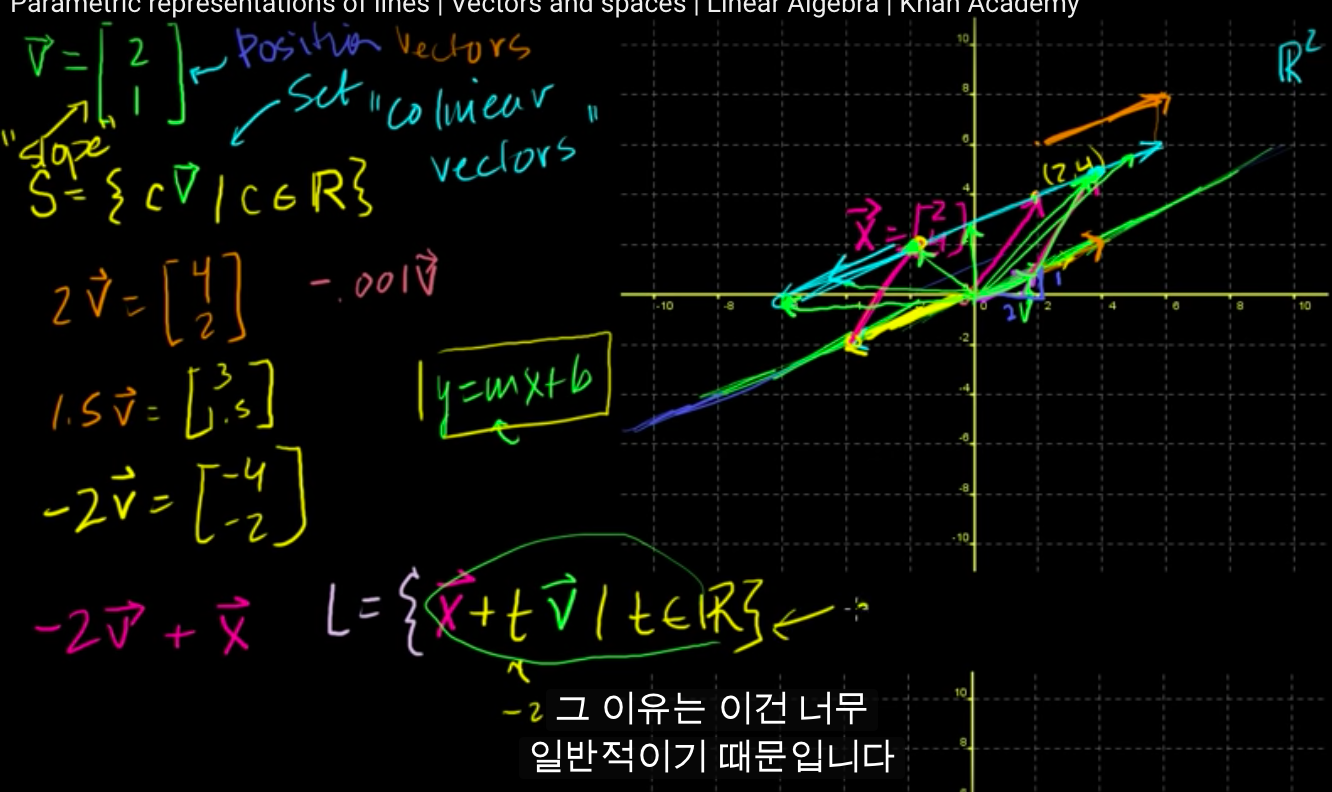 Parametric representations of lines | Vectors and spaces | Linear Algebra | Khan Academy
v⃗ = [2 1]
Position Vectors
Set "colinear vectors"
"slope"
S = { c v⃗ | c ∈ ℝ }
2v⃗ = [4 2]
-.001v⃗
1.5v⃗ = [3 1.5]
y=mx+b
-2v⃗ = [-4 -2]
-2v⃗ + x⃗
L = { x⃗ + t v⃗ | t ∈ ℝ }
-2
ℝ²
(2,4)
x⃗ = [2 4]
1
2
v⃗
10
8
6
4
-10
-8
0
2
4
6
8
10
-2
-4
-6
-8
-10
10
8
그 이유는 이건 너무
일반적이기 때문입니다